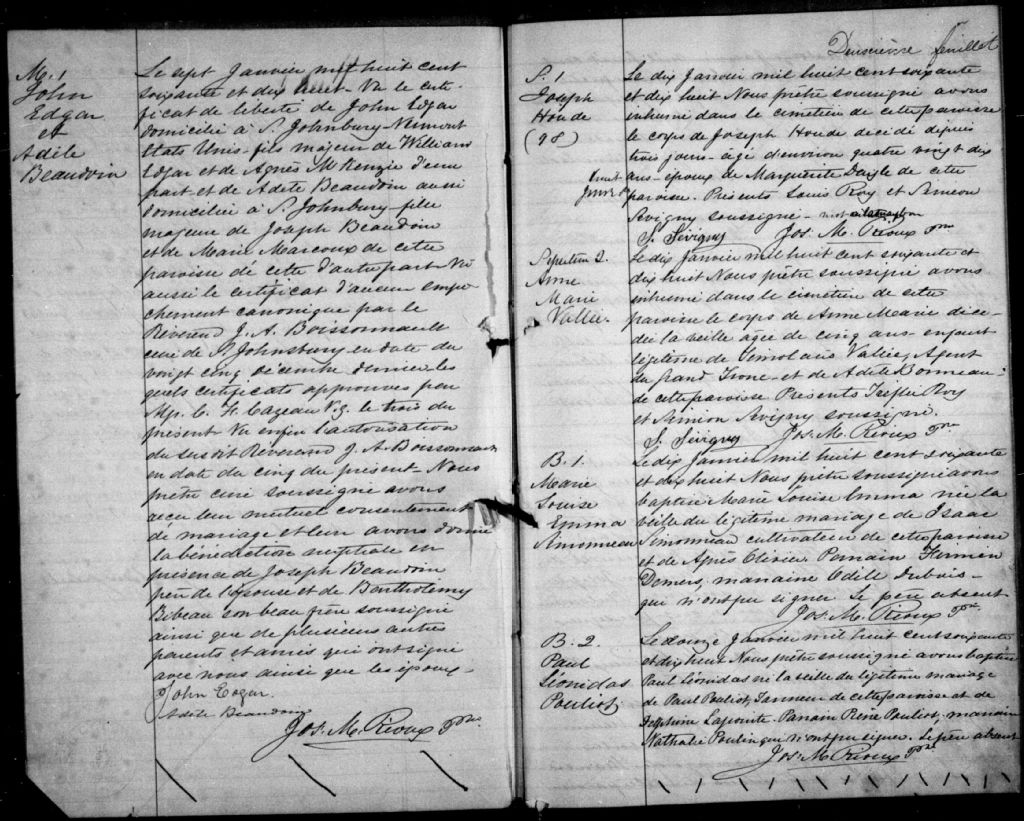 M. 1
John
Edgar
et
Adèle
Beaudoin
Le sept Janvier mil huit cent
soixante et dix huit. Vu le certi-
ficat de liberté de John Edgar
domicilié à St. Johnbury Vermont
Etats Unis - fils majeur de William
Edgar et de Agnès McKenzie d'une
part et de Adele Beaudoin aussi
domicilié à St. Johnbury - fille
majeure de Joseph Beaudoin
et de Marie Marcoux de cette
paroisse de cette d'autre part Vu
aussi le certificat d'aucun empe-
chement canonique par le
Reverend J. A. Boissonnault
curé de St. Johnsbury en date du
vingt cinq décembre dernier les
quels certificats approuvés par
Mgr. C. F. Cazeau V.g. le trois du
présent Vu enfin l'autorisation
du susdit Reverend J. A. Boissonnault
en date du cinq du présent Nous
prêtre curé soussigné avons
reçu leur mutuel consentement
de mariage et leur avons donné
la bénédiction nuptiale en
présence de Joseph Beaudoin
père de l'épouse et de Bartholemy
Bibeau son beau frère soussigné
ainsi que de plusieurs autres
parents et amis qui ont signé
avec nous ainsi que les époux -
John Edgar.
Adele Beaudoin
Jos. M. Rioux Ptre.
Deuxième feuillet
S. 1
Joseph
Houde
(98)
Le dix Janvier mil huit cent soixante
et dix huit Nous prêtre soussigné avons
inhumé dans le cimetière de cette paroisse
le corps de Joseph Houde décidé depuis
trois jours - agé d'environ quatre vingt dix
huit ans - époux de Marguerite Dayle de cette
J.M.R. paroisse. Présents Louis Roy et Siméon
Sévigny soussigné -
S. Sévigny Jos. M. Rioux Ptre
Sépulture 2.
Anne
Marie
Vallée.
Le dix Janvier mil huit cent soixante et
dix huit Nous prêtre soussigné avons
inhumé dans le cimetière de cette
paroisse le corps de Anne Marie décé-
dée la veille agée de cinq ans - enfant
légitime de Vallée, Agent
du Grand Tronc - et de Adele Bonneau
de cette paroisse Présents Treflé Roy
et Siméon Sévigny soussigné.
S. Sévigny Jos. M. Rioux Ptre
B. 1.
Marie
Louise
Emma
Simonneau
Le dix Janvier mil huit cent soixante
et dix huit Nous prêtre soussigné avons
baptisé Marie Louise Emma née la
veille du légitime mariage de Isaac
Simonneau cultivateur de cette paroisse
et de Agnès Olivier. Parrain Firmin
Demers, marraine Odile Dubois -
qui n'ont pu signer. Le père absent
Jos. M. Rioux Ptr.
B. 2.
Paul
Léonidas
Pouliot.
Le douze Janvier mil huit cent soixante
et dix huit Nous prêtre soussigné avons baptisé
Paul Léonidas né la veille du légitime mariage
de Paul Pouliot, Tanneur de cette paroisse et de
Josephine Lapointe. Parrain René Pouliot, marraine
Nathalie Poulin qui n'ont pu signer. Le père absent
Jos. M. Rioux Ptr.